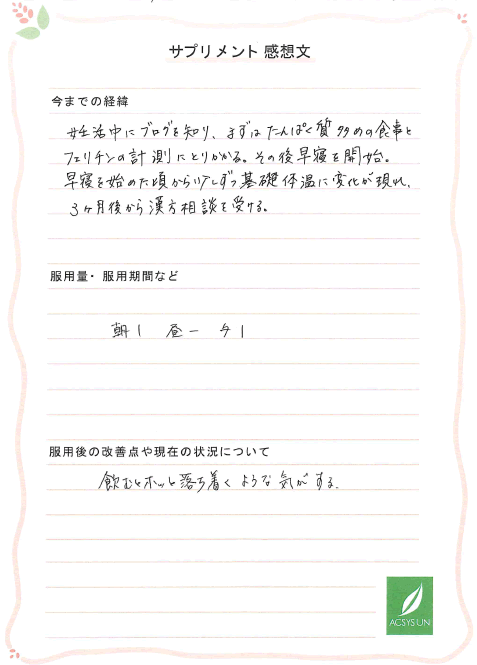 サプリメント 感想文
今までの経緯
妊活中にブログを知り、まずはたんぱく質多めの食事と
フェリチンの計測にとりかかる。その後早寝を開始。
早寝を始めた頃から少しずつ基礎体温に変化が現れ、
3ヶ月後から漢方相談を受ける。
服用量・服用期間など
朝1 昼一 夕1
服用後の改善点や現在の状況について
飲むとホッと落ち着くような気がする。
ACSYS UN